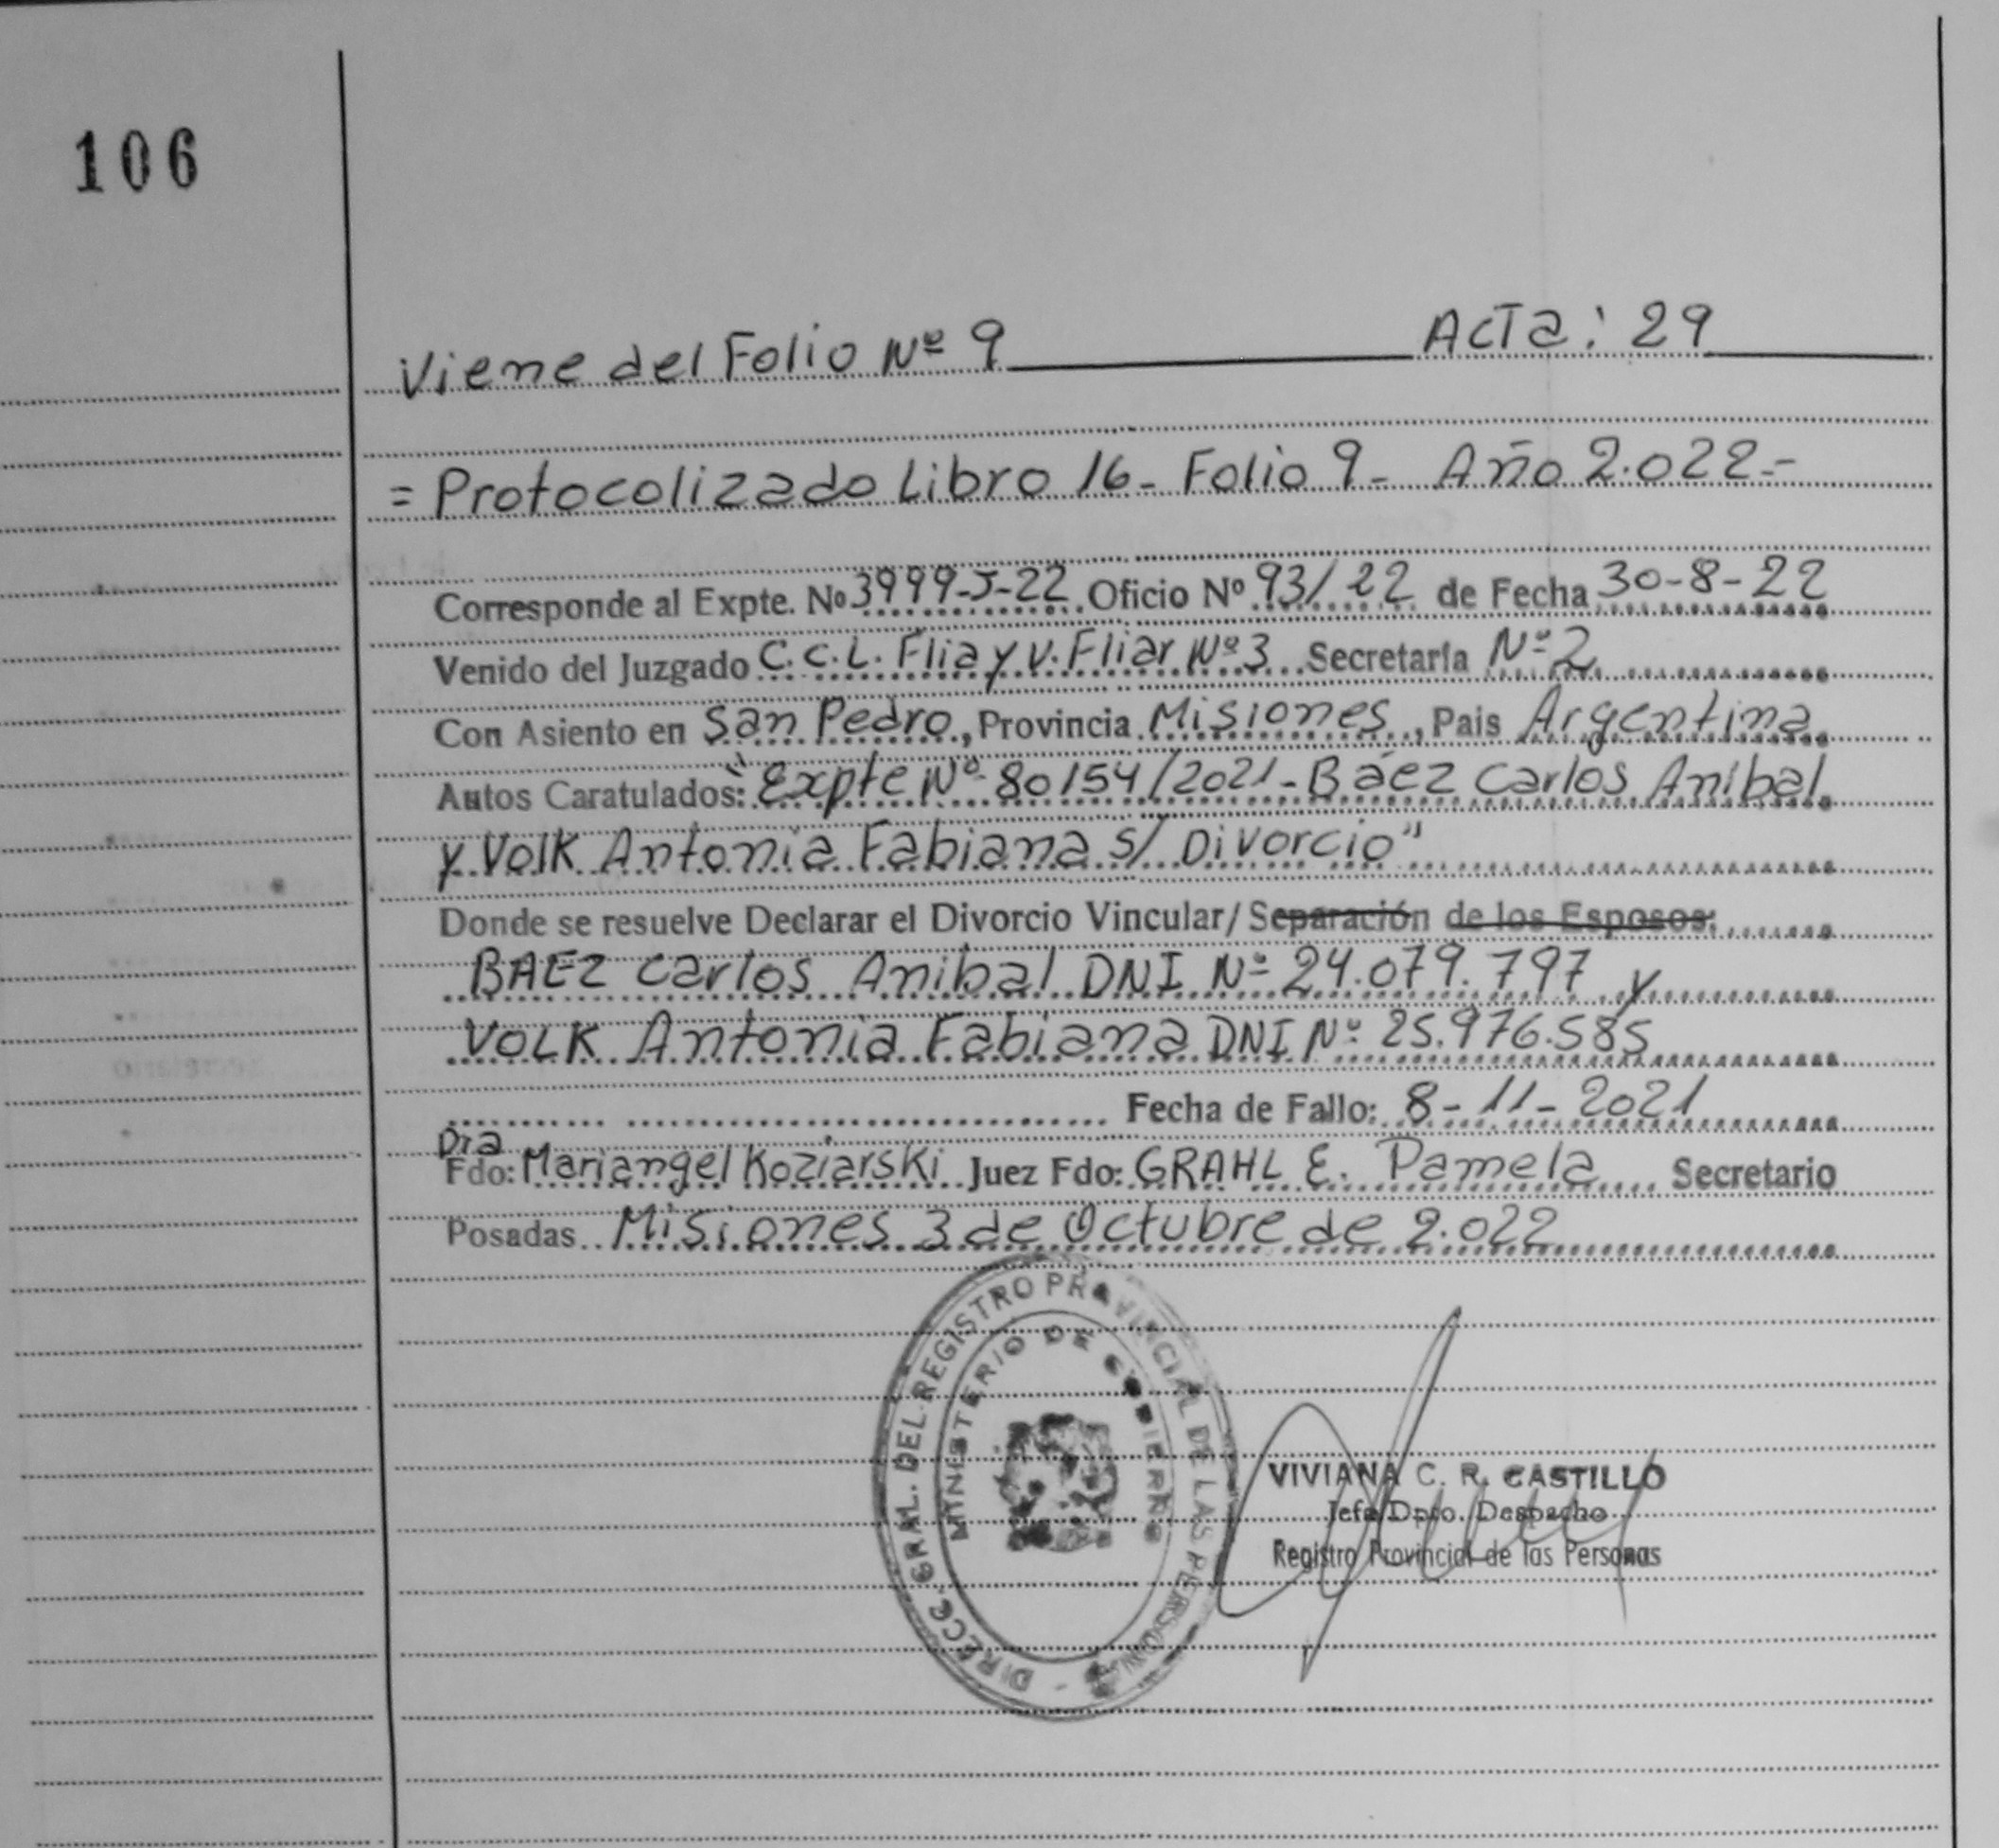 106
Viene del Folio Nº 9 Acta: 29
= Protocolizado Libro 16- Folio 9- Año 2.022.-
Corresponde al Expte. Nº 3999-J-22 Oficio Nº 93/22 de Fecha 30-8-22
Venido del Juzgado C.C.L. Flia y V. Fliar Nº 3 Secretaría Nº 2
Con Asiento en San Pedro, Provincia Misiones, Pais Argentina
Autos Caratulados: "Expte Nº 80154/2021-Báez Carlos Anibal
y Volk Antonia Fabiana s/ Divorcio"
Donde se resuelve Declarar el Divorcio Vincular/ Separación de los Esposos:
BAEZ Carlos Anibal DNI Nº 24.079.797 y
VOLK Antonia Fabiana DNI Nº 25.976.585
Fecha de Fallo: 8-11-2021
Dra
Fdo: Mariangel Koziarski Juez Fdo: GRAHL E. Pamela Secretario
Posadas Misiones 3 de Octubre de 2.022
DIRECC. GRAL. DEL REGISTRO PROVINCIAL DE LAS PERSONAS
MINISTERIO DE GOBIERNO
VIVIANA C. R. CASTILLO
Jefa Dpto. Despacho
Registro Provincial de las Personas